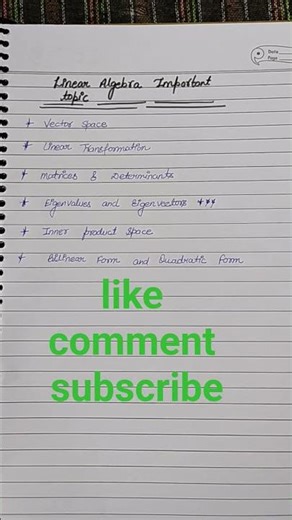 Date
Page
Linear Algebra Important
topic
+ Vector Space
+ Linear Transformation
+ Matrices & Determinants
+ Eigenvalues and Eigenvectors ***
+ Inner product Space
+ Bilinear Form and Quadratic form
like
comment
subscribe